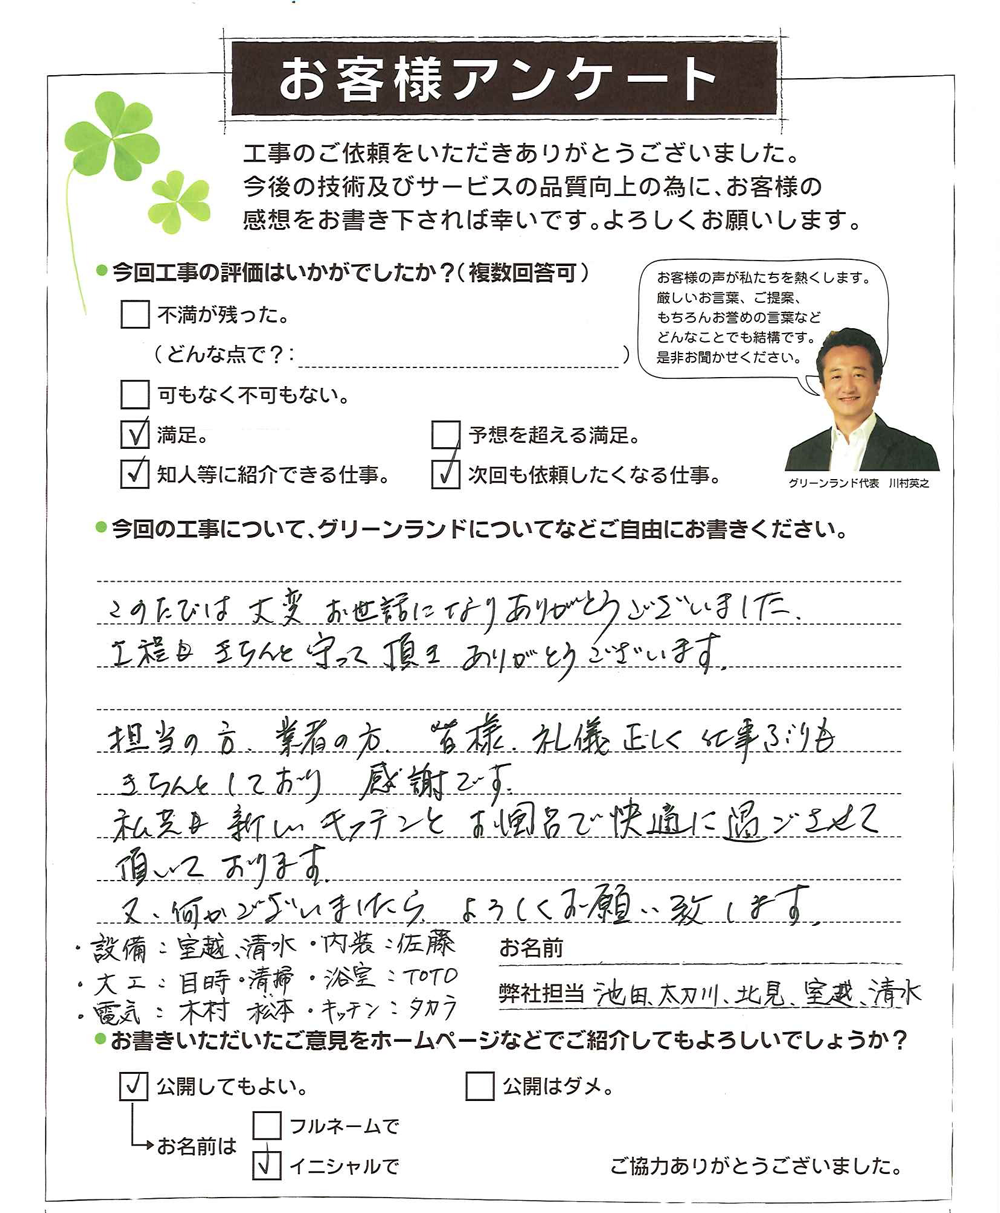 お客様アンケート
工事のご依頼をいただきありがとうございました。
今後の技術及びサービスの品質向上の為に、お客様の
感想をお書き下されば幸いです。よろしくお願いします。
●今回工事の評価はいかがでしたか？（複数回答可）
お客様の声が私たちを熱くします。
厳しいお言葉、ご提案、
もちろんお誉めの言葉など
どんなことでも結構です。
是非お聞かせください。
グリーンランド代表　川村英之
□ 不満が残った。
（どんな点で？：　）
□ 可もなく不可もない。
☑ 満足。　□ 予想を超える満足。
☑ 知人等に紹介できる仕事。　☑ 次回も依頼したくなる仕事。
●今回の工事について、グリーンランドについてなどご自由にお書きください。
このたびは 大変 お世話になりありがとうございました.
工程も きちんと 守って 頂き ありがとうございます.
担当の方、業者の方、皆様、礼儀正しく 仕事ぶりも
きちんとしており 感謝です.
私共も 新しい キッチンと お風呂で快適に過ごさせて
頂いて おります.
又、何かございましたら、よろしくお願い致します.
・設備：室越、清水・内装：佐藤
・大工：目時・清掃・浴室：TOTO
・電気：木村 松本・キッチン：タカラ
お名前
弊社担当 池田、太刀川、北見、室越、清水
●お書きいただいたご意見をホームページなどでご紹介してもよろしいでしょうか？
☑ 公開してもよい。　□ 公開はダメ。
→お名前は
□ フルネームで
☑ イニシャルで
ご協力ありがとうございました。